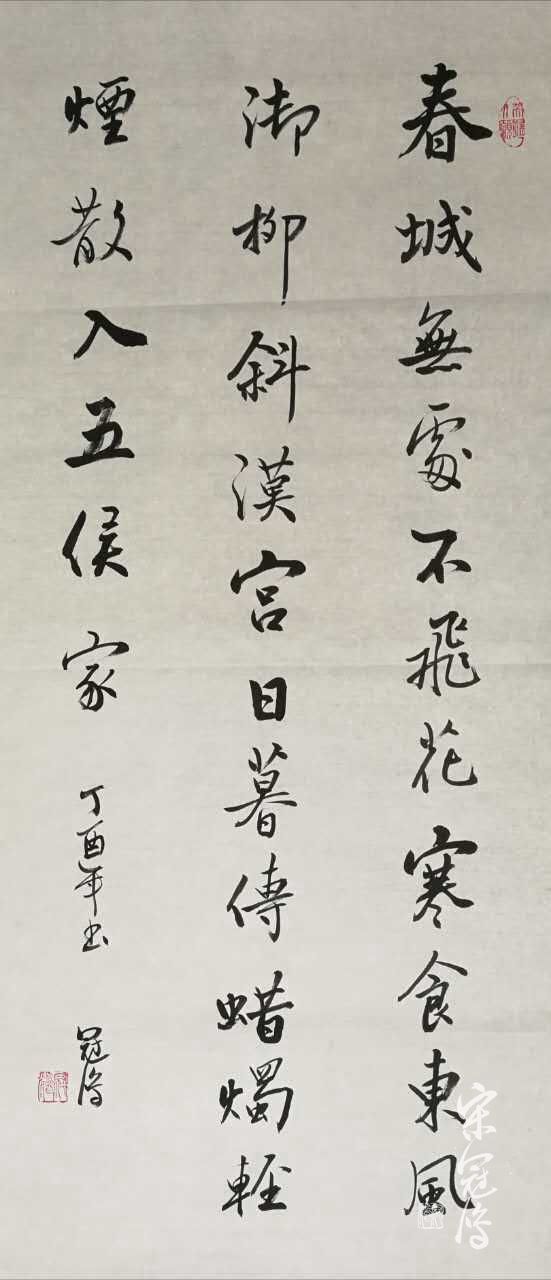 春城無處不飛花寒食東風
御柳斜漢宮日暮傳蜡燭輕
煙散入五侯家
丁酉年書